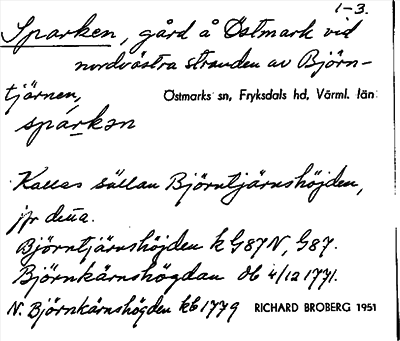 1-3.
Sparken, gård å Östmark vid
nordvästra stranden av Björn-
tjörnen, Östmarks sn, Fryksdals hd, Värml. län
spárkən
Kallas sällan Björntjärnshöjden,
jfr detta.
Björntjärnshöjden k G87N, G87.
Björnkärnshögdan Db 4/12 1771.
N. Björnkärnshögden kb 1779 RICHARD BROBERG 1951